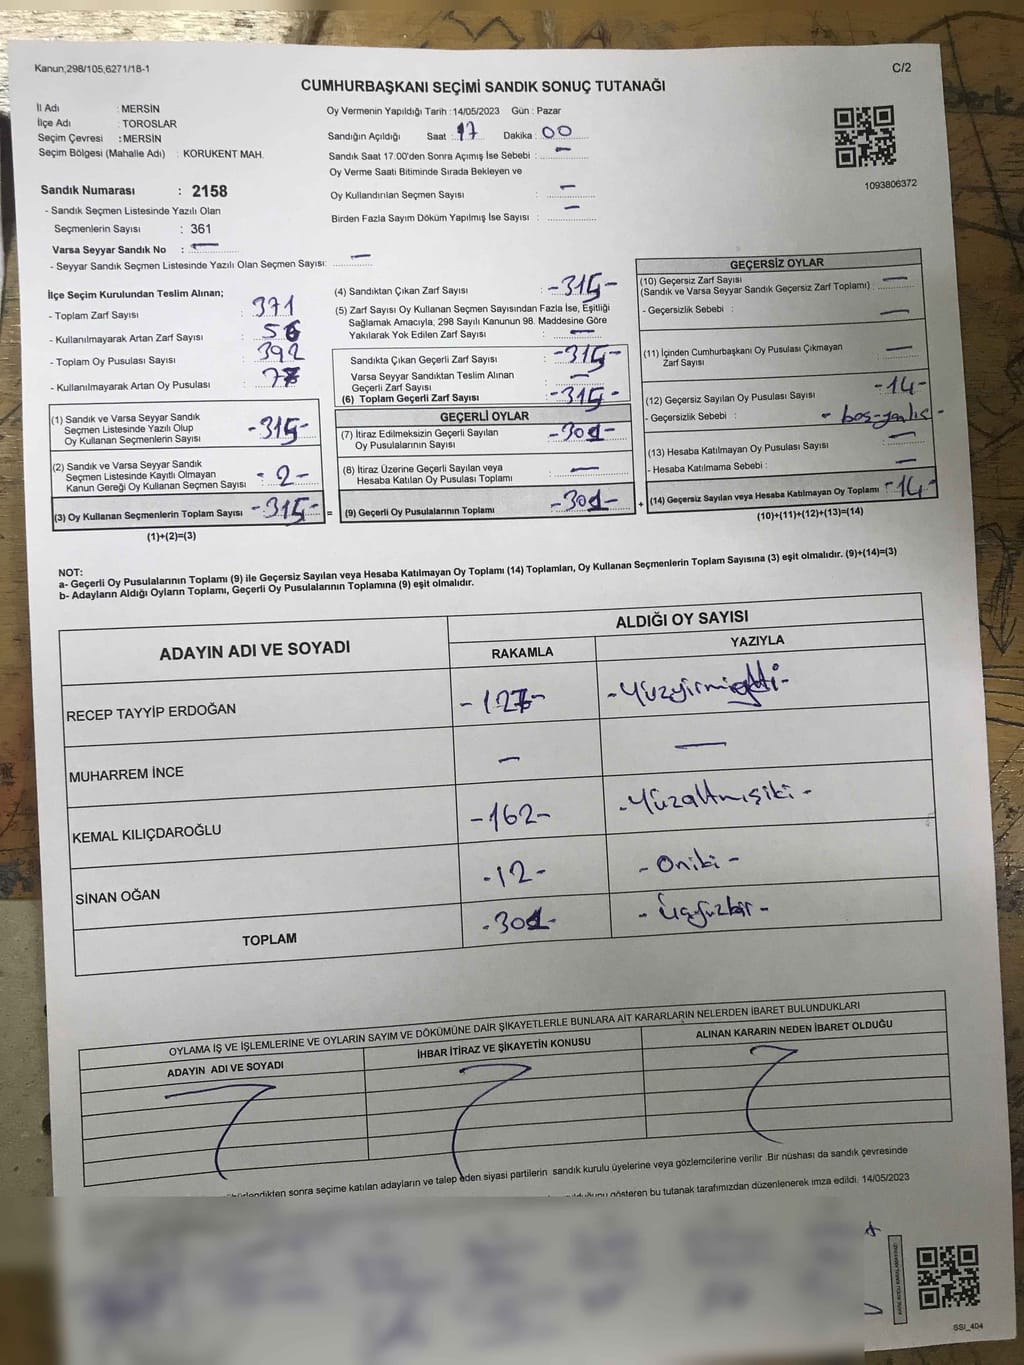 Kanun;298/105,6271/18-1
C/2
CUMHURBAŞKANI SEÇİMİ SANDIK SONUÇ TUTANAĞI
İl Adı : MERSİN
İlçe Adı : TOROSLAR
Seçim Çevresi : MERSİN
Seçim Bölgesi (Mahalle Adı) : KORUKENT MAH.
Sandık Numarası : 2158
- Sandık Seçmen Listesinde Yazılı Olan
Seçmenlerin Sayısı : 361
Varsa Seyyar Sandık No : —
- Seyyar Sandık Seçmen Listesinde Yazılı Olan Seçmen Sayısı: —
Oy Vermenin Yapıldığı Tarih : 14/05/2023 Gün : Pazar
Sandığın Açıldığı Saat : 17 Dakika : 00
Sandık Saat 17:00'den Sonra Açımış İse Sebebi : —
Oy Verme Saati Bitiminde Sırada Bekleyen ve
Oy Kullandırılan Seçmen Sayısı : —
Birden Fazla Sayım Döküm Yapılmış İse Sayısı : —
1093806372
İlçe Seçim Kurulundan Teslim Alınan;
- Toplam Zarf Sayısı : 371
- Kullanılmayarak Artan Zarf Sayısı : 56
- Toplam Oy Pusulası Sayısı : 392
- Kullanılmayarak Artan Oy Pusulası : 77
(1) Sandık ve Varsa Seyyar Sandık
Seçmen Listesinde Yazılı Olup
Oy Kullanan Seçmenlerin Sayısı -315-
(2) Sandık ve Varsa Seyyar Sandık
Seçmen Listesinde Kayıtlı Olmayan
Kanun Gereği Oy Kullanan Seçmen Sayısı - 2 -
(3) Oy Kullanan Seçmenlerin Toplam Sayısı -315- =
(1)+(2)=(3)
(4) Sandıktan Çıkan Zarf Sayısı : -315-
(5) Zarf Sayısı Oy Kullanan Seçmen Sayısından Fazla İse, Eşitliği
Sağlamak Amacıyla, 298 Sayılı Kanunun 98. Maddesine Göre
Yakılarak Yok Edilen Zarf Sayısı : —
Sandıkta Çıkan Geçerli Zarf Sayısı : -315-
Varsa Seyyar Sandıktan Teslim Alınan
Geçerli Zarf Sayısı : —
(6) Toplam Geçerli Zarf Sayısı : -315-
GEÇERLİ OYLAR
(7) İtiraz Edilmeksizin Geçerli Sayılan
Oy Pusulalarının Sayısı -301-
(8) İtiraz Üzerine Geçerli Sayılan veya
Hesaba Katılan Oy Pusulası Toplamı —
(9) Geçerli Oy Pusulalarının Toplamı -301- +
GEÇERSİZ OYLAR
(10) Geçersiz Zarf Sayısı
(Sandık ve Varsa Seyyar Sandık Geçersiz Zarf Toplamı) : —
- Geçersizlik Sebebi : —
(11) İçinden Cumhurbaşkanı Oy Pusulası Çıkmayan
Zarf Sayısı : —
(12) Geçersiz Sayılan Oy Pusulası Sayısı -14-
- Geçersizlik Sebebi : - boş-yanlış -
(13) Hesaba Katılmayan Oy Pusulası Sayısı —
- Hesaba Katılmama Sebebi : —
(14) Geçersiz Sayılan veya Hesaba Katılmayan Oy Toplamı -14-
(10)+(11)+(12)+(13)=(14)
NOT:
a- Geçerli Oy Pusulalarının Toplamı (9) ile Geçersiz Sayılan veya Hesaba Katılmayan Oy Toplamı (14) Toplamları, Oy Kullanan Seçmenlerin Toplam Sayısına (3) eşit olmalıdır. (9)+(14)=(3)
b- Adayların Aldığı Oyların Toplamı, Geçerli Oy Pusulalarının Toplamına (9) eşit olmalıdır.
ADAYIN ADI VE SOYADI
ALDIĞI OY SAYISI
RAKAMLA YAZIYLA
RECEP TAYYİP ERDOĞAN -127-
MUHARREM İNCE — —
KEMAL KILIÇDAROĞLU -162- -Yüzaltmışiki-
SİNAN OĞAN -12- -Oniki-
TOPLAM -301- -Üçyüzbir-
OYLAMA İŞ VE İŞLEMLERİNE VE OYLARIN SAYIM VE DÖKÜMÜNE DAİR ŞİKAYETLERLE BUNLARA AİT KARARLARIN NELERDEN İBARET BULUNDUKLARI
ADAYIN ADI VE SOYADI
İHBAR İTİRAZ VE ŞİKAYETİN KONUSU
ALINAN KARARIN NEDEN İBARET OLDUĞU
sonra seçime katılan adayların ve talep eden siyasi partilerin sandık kurulu üyelerine veya gözlemcilerine verilir .Bir nüshası da sandık çevresinde
gösteren bu tutanak tarafımızdan düzenlenerek imza edildi. 14/05/2023
SSI_404